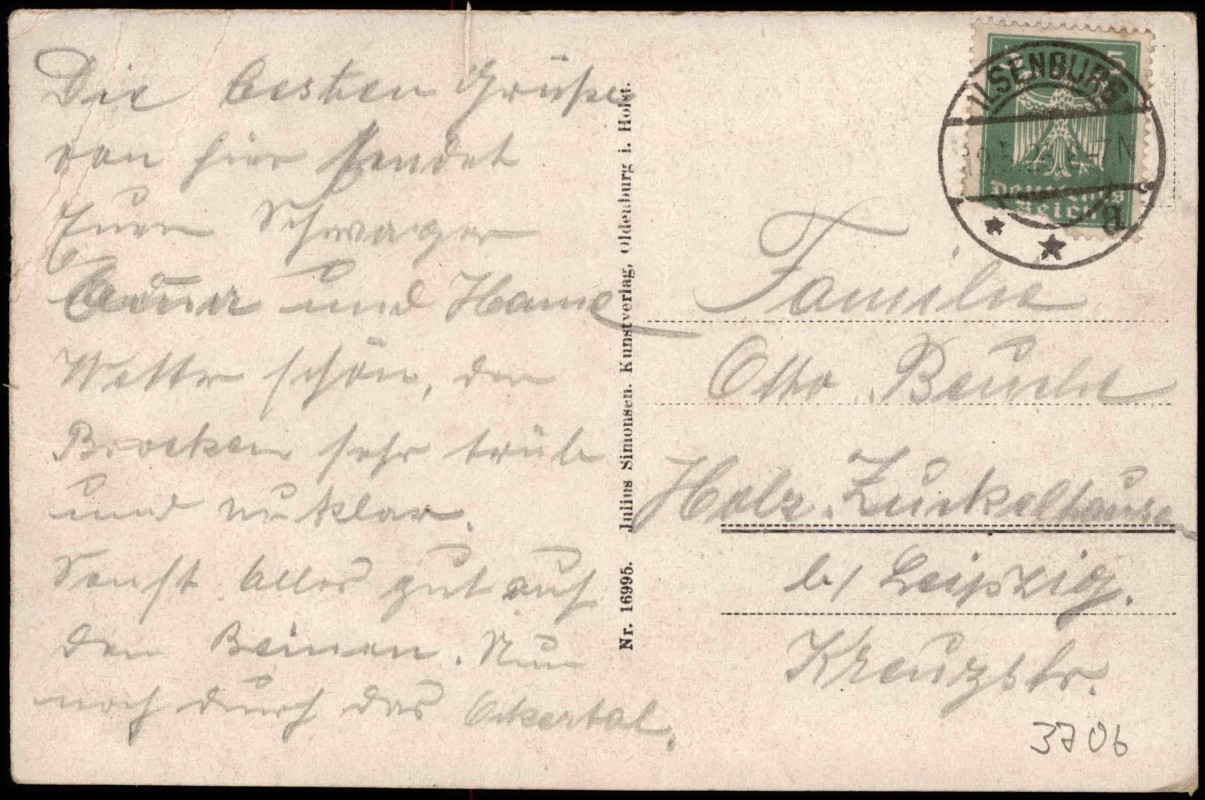 Die besten Grüße
von hier sendet
Euer Schwager
und
Wetter schön, der
Brocken sehr trübe
und unklar.
Sonst Alles gut auf
den Beinen. Nun
noch durch das Ockertal.
Nr. 16995. Julius Simonsen, Kunstverlag, Oldenburg i. Holst.
5
ILSENBURG
a
Deutsches
Reich
Familie
Otto
Holz. Zuckelhausen
b/ Leipzig.
Kreuzstr.
3706